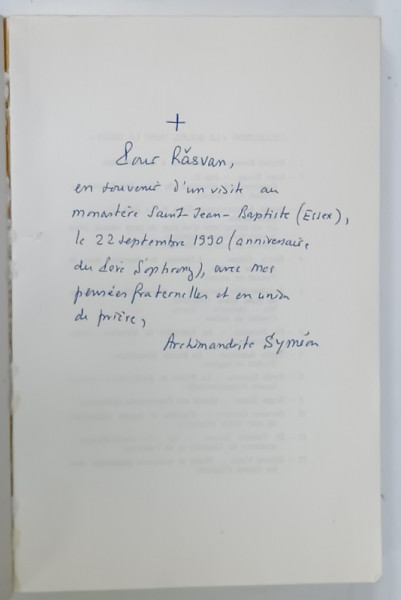 +
Pour Răsvan,
en souvenir d'un visite au
monastère Saint-Jean-Baptiste (Essex),
le 22 septembre 1990 (anniversaire
du Père Sophrony), avec mes
pensées fraternelles et en union
de prière,
Archimandrite Syméon